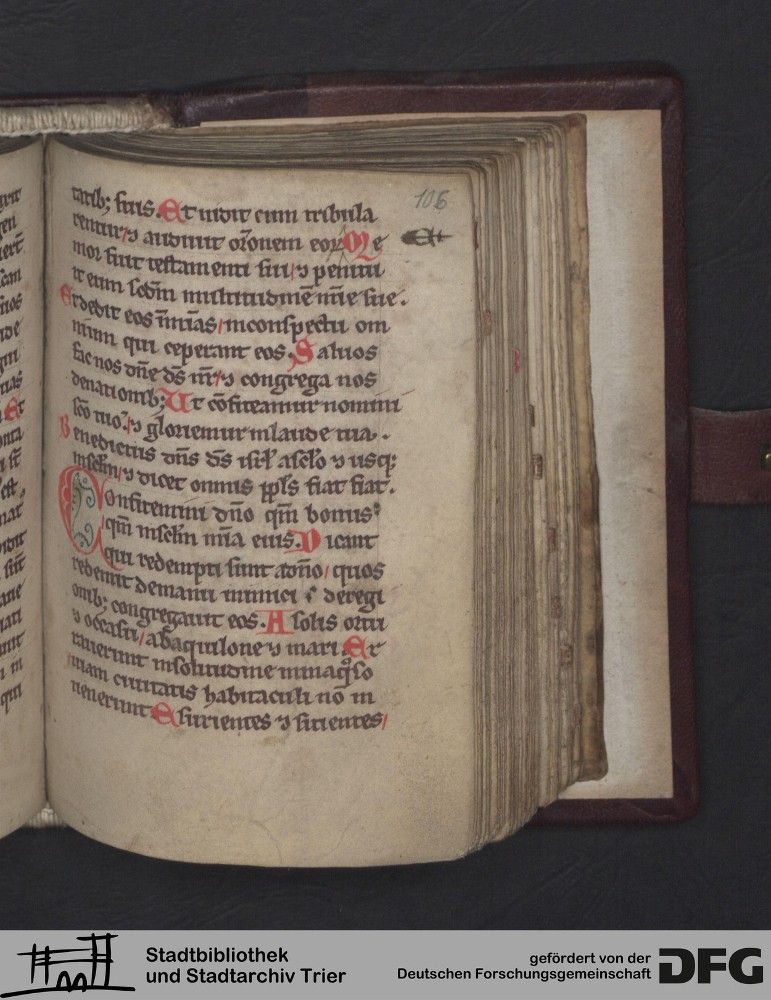 106
tatib; suis. Et uidit cum tribula
rentur / ⁊ audiuit or̄onem eoꝝ Me
mor fuit testamenti sui / ⁊ penitu
it eum scd̄m multitudinē mīe sue.
Et dedit eos ī mīas / inconspectu om
nium qui ceperant eos. Saluos
fac nos dn̄e ds̄ nr̄ / ⁊ congrega nos
denationib; Ut cōfiteamur nomini
sc̄o tuo / ⁊ gloriemur inlaude tua.
Benedictus dn̄s ds̄ isrl̄ asclo ⁊ usq;
insclm / ⁊ dicet omnis ppl̄s fiat fiat.
Confitemini dn̄o qm̄ bonus
qm̄ insclm mīa eius. Dicant
qui redempti sunt adn̄o / quos
redemit demanu inimici ⁊ deregi
onib; congregauit eos. A solis ortu
⁊ occasu / abaquilone ⁊ mari. Er
rauerunt insolitudine ininaq̊so
uiam ciuitatis habitaculi nō in
uenerunt Esurientes ⁊ sitientes /
Stadtbibliothek
und Stadtarchiv Trier
gefördert von der
Deutschen Forschungsgemeinschaft
DFG